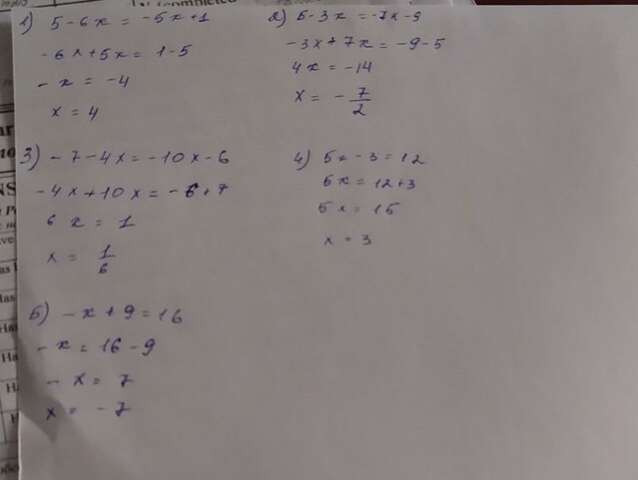 1) 5-6x = -5x+1
-6x+5x = 1-5
-x = -4
x = 4
2) 5-3x = -7x-9
-3x+7x = -9-5
4x = -14
x = -7/2
3) -7-4x = -10x-6
-4x+10x = -6+7
6x = 1
x = 1/6
4) 5x-3 = 12
5x = 12+3
5x = 15
x = 3
5) -x+9 = 16
-x = 16-9
-x = 7
x = -7